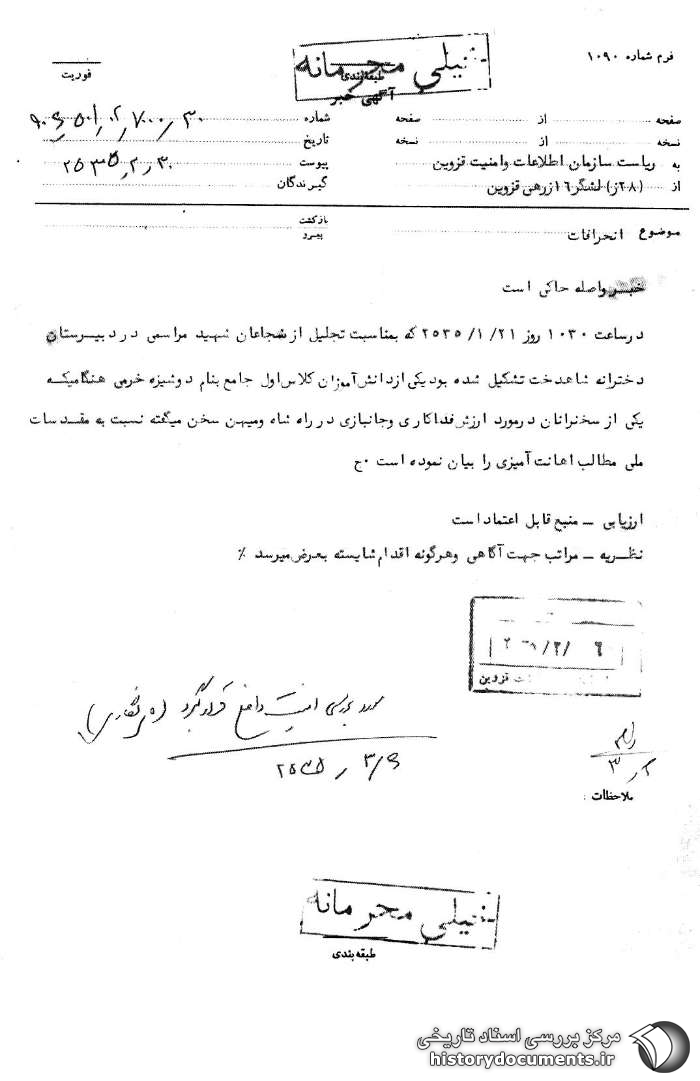 فرم شماره ۱۰۹۰
خیلی محرمانه
طبقه‌بندی
آگهی خبر
فوریت
صفحه از صفحه
نسخه از نسخه
به ریاست سازمان اطلاعات وامنیت قزوین
از (۲۸ز) لشگر ۱۶ زرهی قزوین
شماره
تاریخ
پیوست ۲۵۳۵٫۲٫۳۰
گیرندگان
موضوع انحرافات
بازگشت
پیرو
خبر واصله حاکی است
درساعت ۱۰۳۰ روز ۲۱/ ۱/ ۲۵۳۵ که بمناسبت تجلیل از شجاعان شهید مراسمی در دبیرستان
دخترانه شاهدخت تشکیل شده بود یکی ازدانش آموزان کلاس اول جامع بنام دوشیزه خرمی هنگامیکه
یکی از سخنرانان درمورد ارزش فداکاری وجانبازی در راه شاه ومیهن سخن میگفته نسبت به مقدسات
ملی مطالب اهانت آمیزی را بیان نموده است ۰ج
ارزیابی – منبع قابل اعتماد است
نظریه – مراتب جهت آگاهی وهرگونه اقدام شایسته بعرض میرسد ٪
قزوین
مورد بررسی امنیت داخلی قرار گیرد
۲۵۳۵ ٫ ۳/۶
ملاحظات :
خیلی محرمانه
طبقه‌بندی
مرکز بررسی اسناد تاریخی
historydocuments.ir